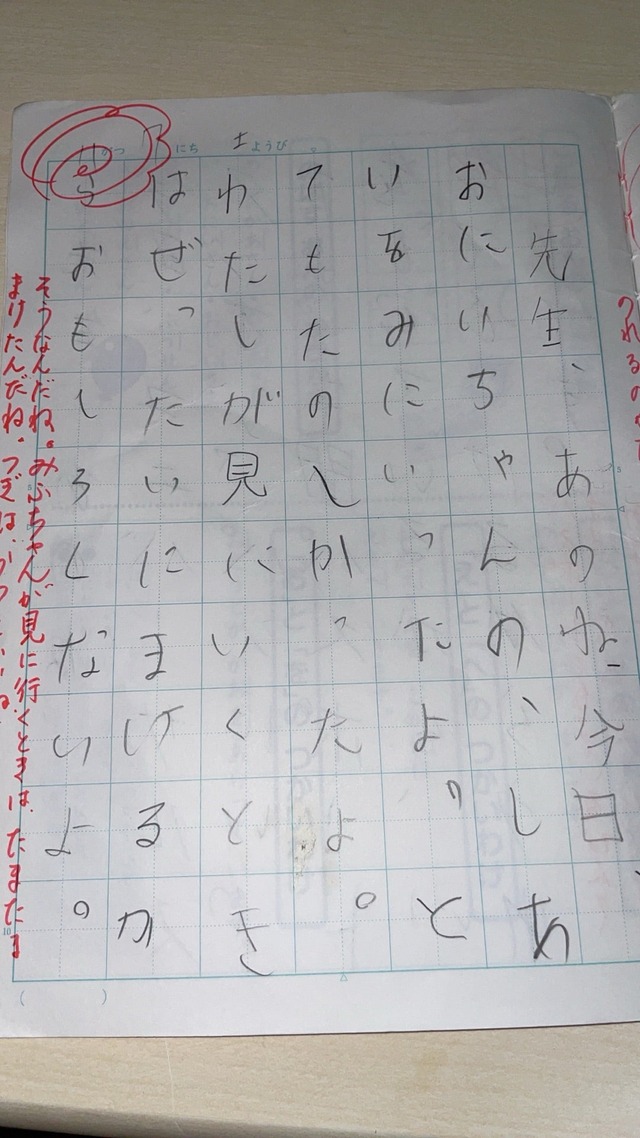 にち 土ようび
先生、あのね、今日、
おにいちゃんの、しあ
いをみにいったよ。と
てもたのしかったよ。
わたしが見にいくとき
はぜったいにまける か
らおもしろくないよ。
そうなんだね。みぶちゃんが見に行くときは、たまたま
まけたんだね。つぎは、
10